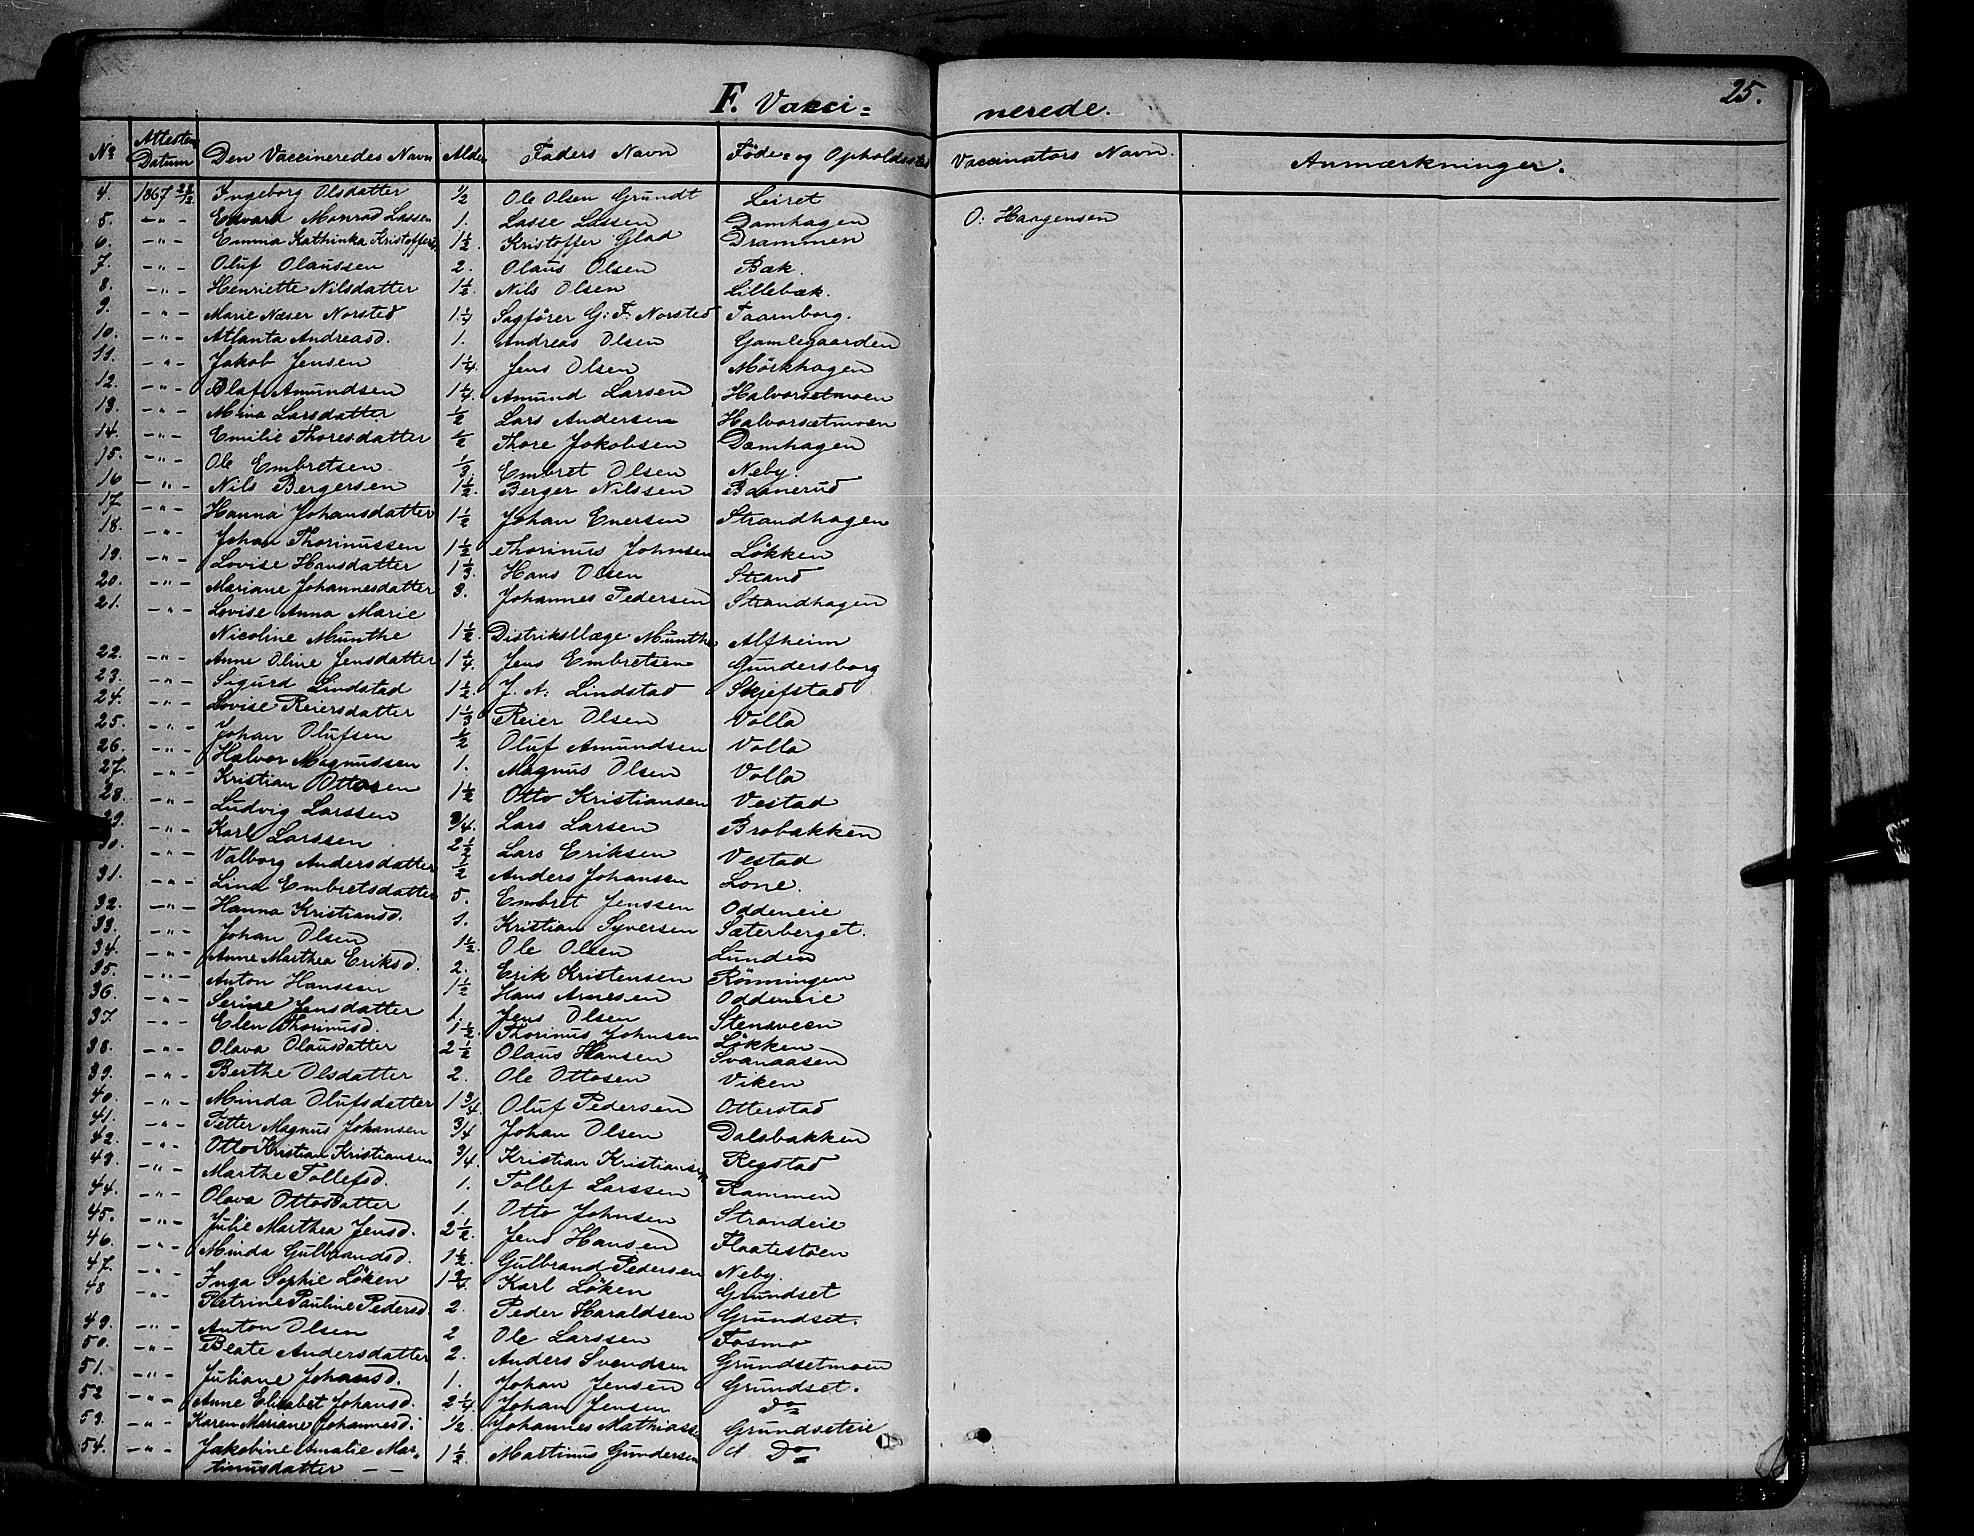 F. Vacci=nerede. 25.
No Attestens Datum Den Vaccineredes Navn Alder Faders Navn Føde= og Opholdssted Vaccinators Navn. Anmærkninger.
4. 1867 Ingeborg Olsdatter 1/2 Ole Olsen Grundt Leiret
5. -"- Edvard Monrad Lassen 1. Lasse Lassen Damhagen O: Haagensen
6. -"- Emma Kathinka Kristoffersd. 1 1/2. Kristoffer Glad Drammen
7. -"- Oluf Olaussen 2. Olaus Olsen Bæk.
8. -"- Henriette Nilsdatter 1 1/2 Nils Olsen Lillebæk.
9. -"- Marie Næser Norsted 1 1/4 Sagfører G: F. Norsted Taarnborg.
10. -"- Atlanta Andreasd. 1. Andreas Olsen Gamlegaarden
11. -"- Jakob Jensen 1 1/4. Jens Olsen Mørkhagen
12. -"- Olaf Amundsen 1 1/4. Amund Larsen Halvorsetmoen
13. -"- Mina Larsdatter 1/2 Lars Andersen Halvorsætmoen
14. -"- Emilie Thoresdatter 1/2 Thore Jakobsen Damhagen
15. -"- Ole Embretsen 1/3. Embret Olsen Neby.
16 -"- Nils Bergersen 1 1/2. Berger Nilssen Banerud
17. -"- Hanna Johansdatter 1 1/2 Johan Enersen Strandhagen
18. -"- Johan Thorinussen 1 1/2 Thorinus Johnsen Løkken
19. -"- Lovise Hansdatter 1 1/3. Hans Olsen Strand
20. -"- Mariane Johannesdatter 3. Johannes Pedersen Strandhagen
21. -"- Lovise Anna Marie
Nicoline Munthe 1 1/2 Distriktslæge Munthe Alfheim
22. -"- Anne Oline Jensdatter 1 1/4. Jens Embretsen Gundersborg
23. -"- Sigurd Lindstad 1 1/2. J. A: Lindstad Skjefstad
24. -"- Lovise Reiersdatter 1 1/3 Reier Olsen Volla
25. -"- Johan Olufsen 1/2 Oluf Amundsen Volla
26. -"- Halvor Magnussen 1. Magnus Olsen Volla
27. -"- Kristian Ottosen 1 1/2 Otto Kristiansen Vestad
28. -"- Ludvig Larssen 3/4. Lars Larsen Brobakken
29. -"- Karl Larssen 2 1/2 Lars Eriksen Vestad
30. -"- Valborg Andersdatter 1/2 Anders Johansen Lone.
31. -"- Lina Embretsdatter 5. Embret Jenssen Oddeneie
32. -"- Hanna Kristiansd. 1. Kristian Syversen Sæterberget.
33. -"- Johan Olsen 1 1/2. Ole Olsen Lunden
34. -"- Anne Marthea Eriksd. 2. Erik Kristensen Rønningen
35. -"- Anton Hanssen 1 1/2 Hans Arnesen Oddeneie
36. -"- Serine Jensdatter 1. Jens Olsen Stensveen
37. -"- Elen Thorinusd. 1 1/2. Thorinus Johnsen Løkken
38. -"- Olava Olausdatter 2 1/2 Olaus Hansen Svanaasen
39. -"- Berthe Olsdatter 2. Ole Ottosen Viken
40. -"- Minda Olufsdatter 1 3/4. Oluf Pedersen Otterstad
41. -"- Petter Magnus Johansen 3/4 Johan Olsen Dalsbakken
42. -"- Otto Kristian Kristiansen 3/4. Kristian Kristiansen Regstad
43. -"- Marthe Tollefsd. 1. Tollef Larssen Rammen
44. -"- Olava Ottosdatter 1. Otto Johnsen Strandeie
45. -"- Julie Marthea Jensd. 2 1/2. Jens Hansen Flaatestøen
46. -"- Minda Gulbrandsd. 1 1/2. Gulbrand Pedersen Neby.
47. -"- Inga Sophie Løken 1 3/4. Karl Løken Grundset
48 -"- Petrine Pauline Pedersd. 2. Peder Haraldsen Grundset.
49. -"- Anton Olsen 2 Ole Larssen Fosmo
50. -"- Beate Andersdatter 2. Anders Svendsen Grundsetmoen
51. -"- Juliane Johansd. 1. Johan Jensen Grundset.
52 -"- Anne Elisabet Johansd. 2 1/4. Johan Jensen do
53. -"- Karen Mariane Johannesd. 1/2 Johannes Mathiassen Grundseteie
54. -"- Jakobine Amalie Mar= 1 1/2. Martinus Gundersen Do
tinusdatter - -